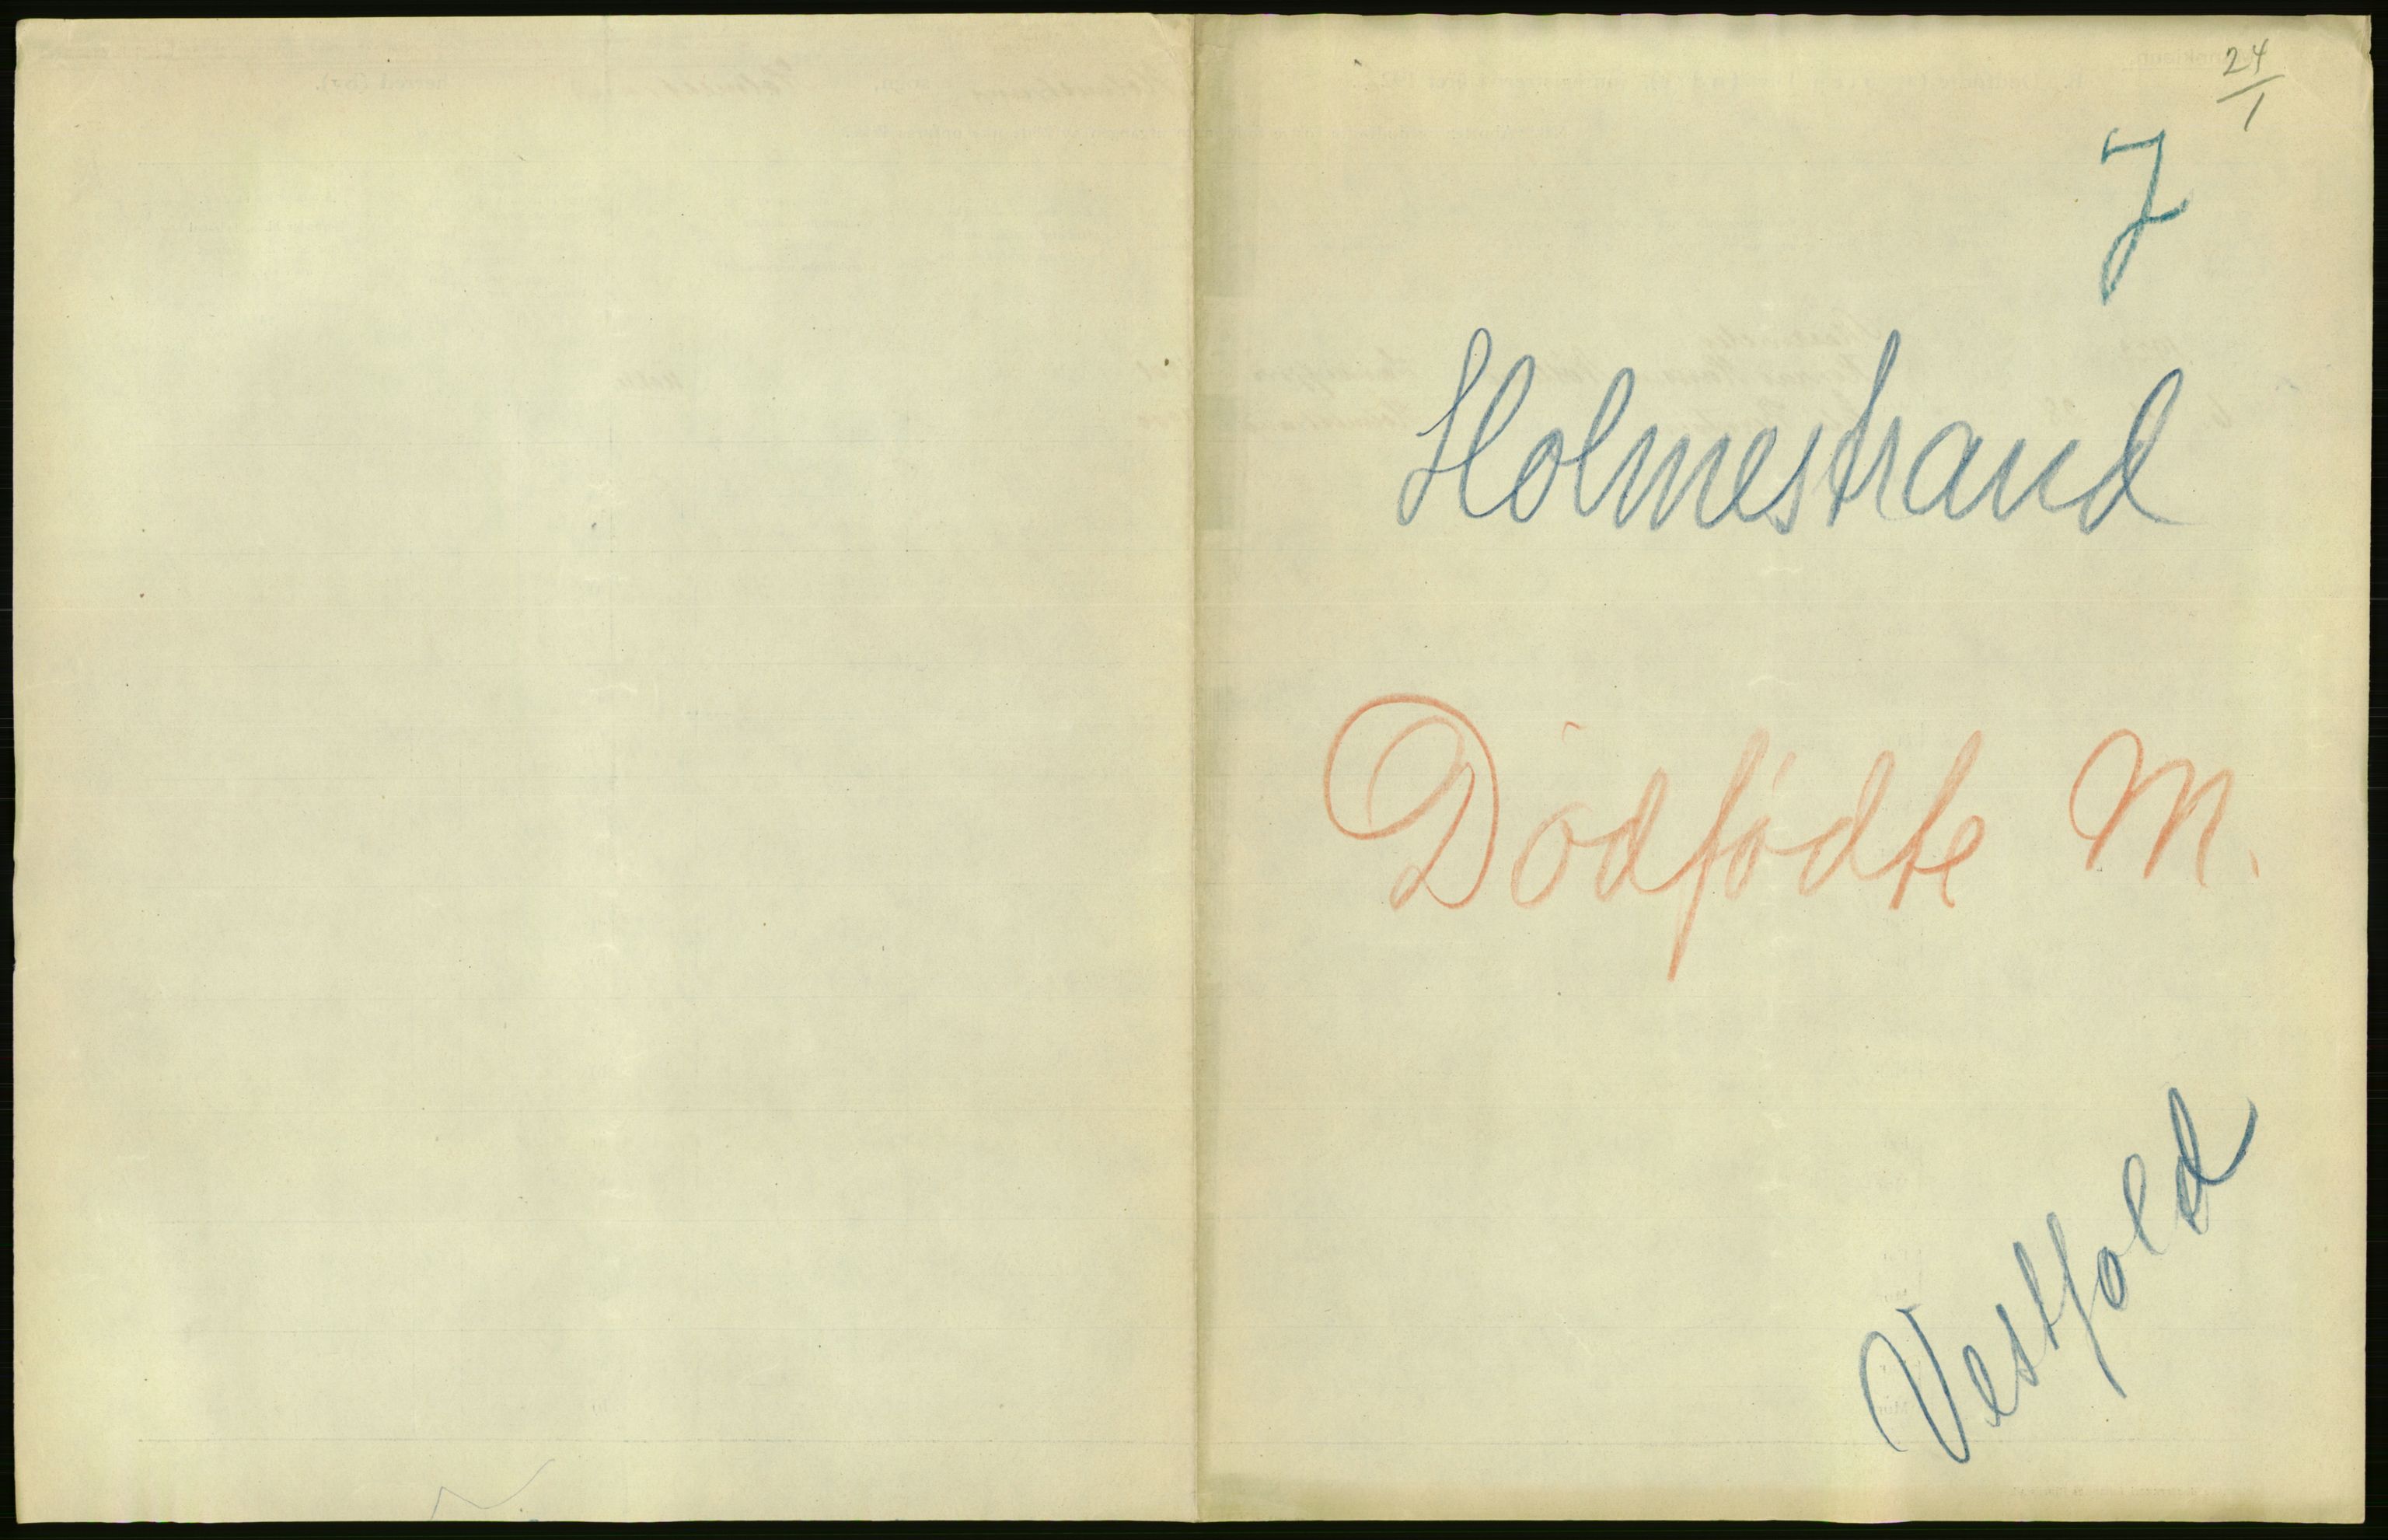 24/1
7
Holmestrand
Dödfödte M.
Vestfold